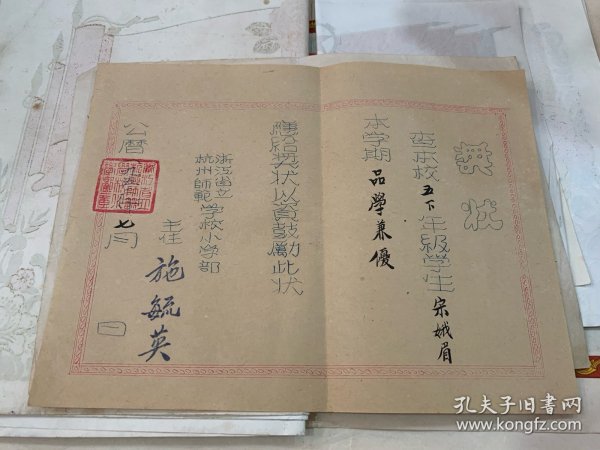 奖状
查本校五下年级学生宋娥眉
本学期品学兼優
应给奖状以资鼓励此状
浙江省立
杭州師範学校小学部
主任 施毓英
公曆
七月 一
孔夫子旧书网
www.kongfz.com